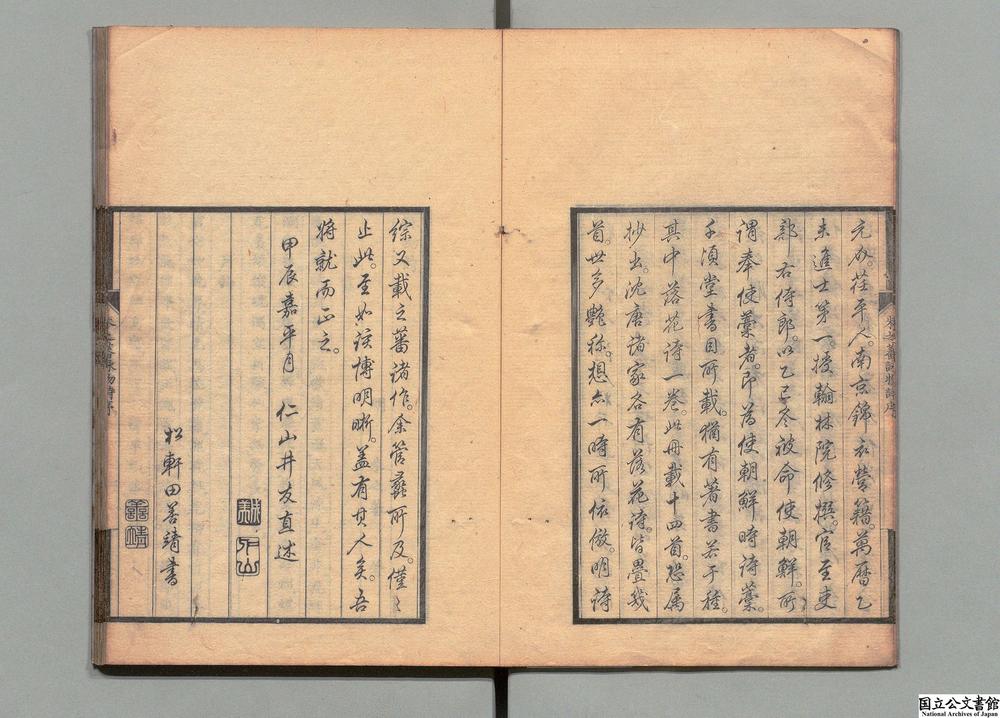 元介。茌平人。南京錦衣營籍。萬曆乙
未進士第一。授翰林院修撰。官至吏
部右侍郎。以乙巳冬被命使朝鮮。所
謂奉使藁者。即為使朝鮮時詩藁。
千頃堂書目所載。猶有著書若干種。
其中落花詩一卷。此冊載十四首。恐属
抄出。沈唐諸家各有落花詩。皆疊我
首。世多艷称。想亦一時所依倣。明詩
綜又載之蕃諸作。余管蠡所及。僅〻
止此。至如該博明晰。盖有其人矣。吾
将就而正之。
甲辰嘉平月 仁山井友直述
松軒田善靖書
善靖
国立公文書館
National Archives of Japan